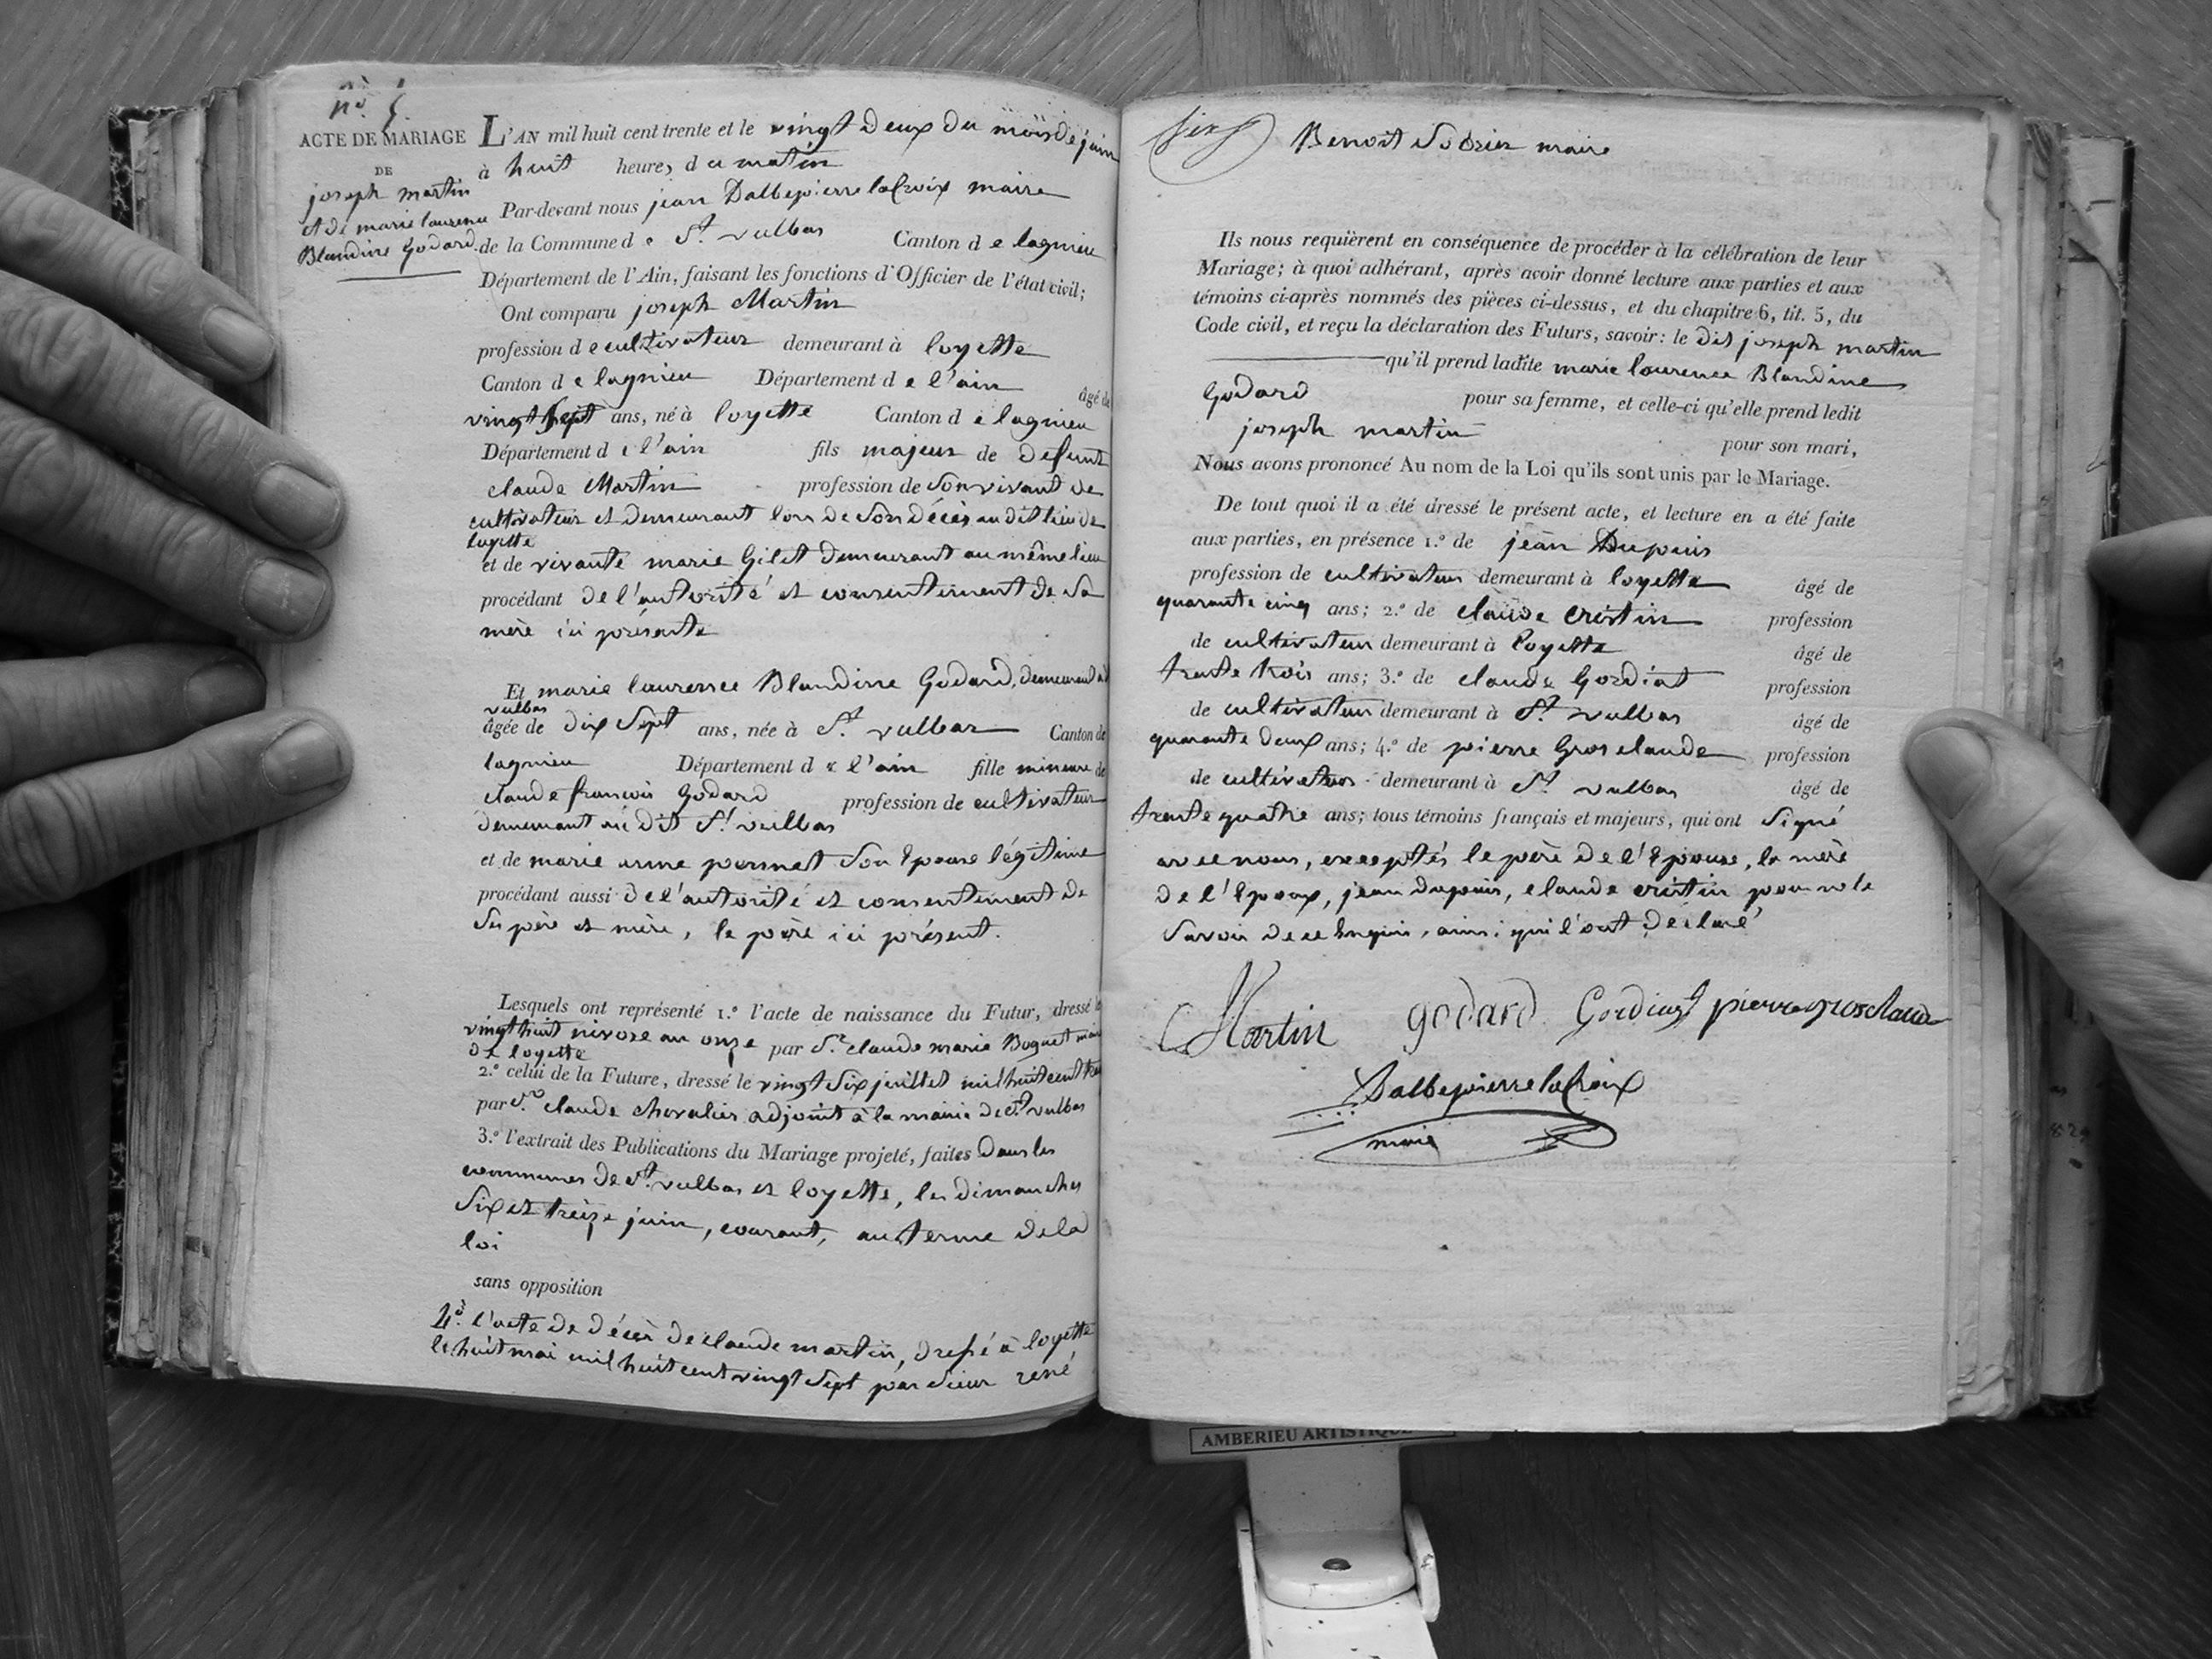 nº 5.
ACTE DE MARIAGE
DE
joseph martin
et de marie laurence
Blandine Godard.
L'AN mil huit cent trente et le vingt deux du mois de juin
à huit heures du matin
Par-devant nous jean Dalbepierre laCroix maire
de la Commune de St. vulbas Canton de lagnieu
Département de l'Ain, faisant les fonctions d'Officier de l'état civil;
Ont comparu joseph Martin
profession de cultivateur demeurant à loyette
Canton de lagnieu Département de l'ain âgé de
vingt sept ans, né à loyette Canton de lagnieu
Département de l'ain fils majeur de defunt
claude Martin profession de son vivant de
cultivateur et demeurant lors de son décès au dit lieu de
loyette
et de vivante marie Gilet demeurant au même lieu
procédant de l'autorité et consentement de sa
mère ici présente
Et marie laurence Blandine Godard, demeurant à St
vulbas
âgée de dix sept ans, née à St. vulbas Canton de
lagnieu Département de l'ain fille mineure de
claude francois Godard profession de cultivateur
demeurant au dit St. vulbas
et de marie anne permet son Epouse légitime
procédant aussi de l'autorité et consentement de
ses père et mère, le père ici présent.
Lesquels ont représenté 1.º l'acte de naissance du Futur, dressé le
vingt huit nivose an onze par Sr. claude marie Boguet maire
de loyette
2.º celui de la Future, dressé le vingt six juillet mil huit cent
par Sr. claude chevalier adjoint à la mairie de St. vulbas
3.º l'extrait des Publications du Mariage projeté, faites dans les
communes de St. vulbas et loyette, les dimanches
six et treize juin, courant, au terme de la
loi
sans opposition
4º. l'acte de décès de claude martin, dressé à loyette
le huit mai mil huit cent vingt sept par sieur rené
six
Benoit maire
Ils nous requièrent en conséquence de procéder à la célébration de leur
Mariage; à quoi adhérant, après avoir donné lecture aux parties et aux
témoins ci-après nommés des pièces ci-dessus, et du chapitre 6, tit. 5, du
Code civil, et reçu la déclaration des Futurs, savoir: le dit joseph martin
qu'il prend ladite marie laurence Blandine
Godard pour sa femme, et celle-ci qu'elle prend ledit
joseph martin pour son mari,
Nous avons prononcé Au nom de la Loi qu'ils sont unis par le Mariage.
De tout quoi il a été dressé le présent acte, et lecture en a été faite
aux parties, en présence 1.º de jean Dupuis
profession de cultivateur demeurant à loyette âgé de
quarante cinq ans; 2.º de claude cristin profession
de cultivateur demeurant à loyette âgé de
trente trois ans; 3.º de claude Gordiat profession
de cultivateur demeurant à St. vulbas âgé de
quarante deux ans; 4.º de pierre Gros claude profession
de cultivateur demeurant à St. vulbas âgé de
trente quatre ans; tous témoins français et majeurs, qui ont signé
avec nous, exceptés le père de l'Epouse, la mère
de l'Epoux, jean dupuis, claude cristin pour ne le
savoir de ce Enquis, ainsi qui l'ont déclaré
Martin godard Gordiat pierre grosclaude
Dalbepierre laCroix
maire
AMBERIEU ARTISTIQUE